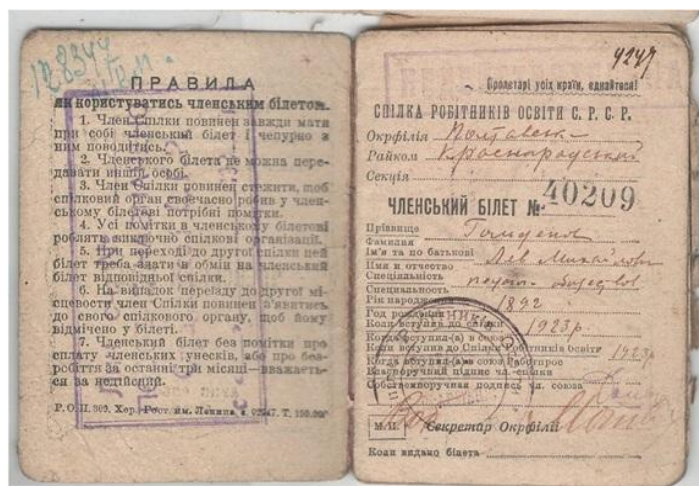 128344
ПРАВИЛА
як користуватись членським білетом.
1. Член Спілки повинен завжди мати
при собі членський білет і чепурно з
ним поводітись.
2. Членського білета не можна пере-
давати иншій особі.
3. Член Спілки повинен стежити, щоб
спілковий орган своєчасно робив у член-
ському білетові потрібні помітки.
4. Усі помітки в членському білетові
роблять виключно спілкові організації.
5. При переході до другої спілки цей
білет треба здати в обмін на членський
білет відповідної спілки.
6. На випадок переїзду до другої мі-
сцевости член Спілки повинен з'явитись
до свого спілкового органу, щоб йому
відмічено у білеті.
7. Членський білет без помітки про
сплату членських унесків, або про без-
робіття за останні три місяці—вважаєть-
ся за недійсний.
4247
Пролетарі усіх країн, єднайтеся!
СПІЛКА РОБІТНИКІВ ОСВІТИ С. Р. С. Р.
Окрфілія Полтавськ
Райком Красноградський
Секція
ЧЛЕНСЬКИЙ БІЛЕТ № 40209
Прізвище
Фамилия
Ім'я та по батькові Лев Михайлович
Имя и отчество
Спеціяльність
Специальность
Рік народження 1892
Год рождения
Коли вступив до спілки 1923р.
Когда вступил(а) в союз
Коли вступив до Спілки Робітників освіти 1923р
Когда вступил(а) в союз Рабпрос
Власноручний підпис чл. спілки
Собственноручная подпись чл. союза
М. П. Секретар Окрфілії
Коли видано білета